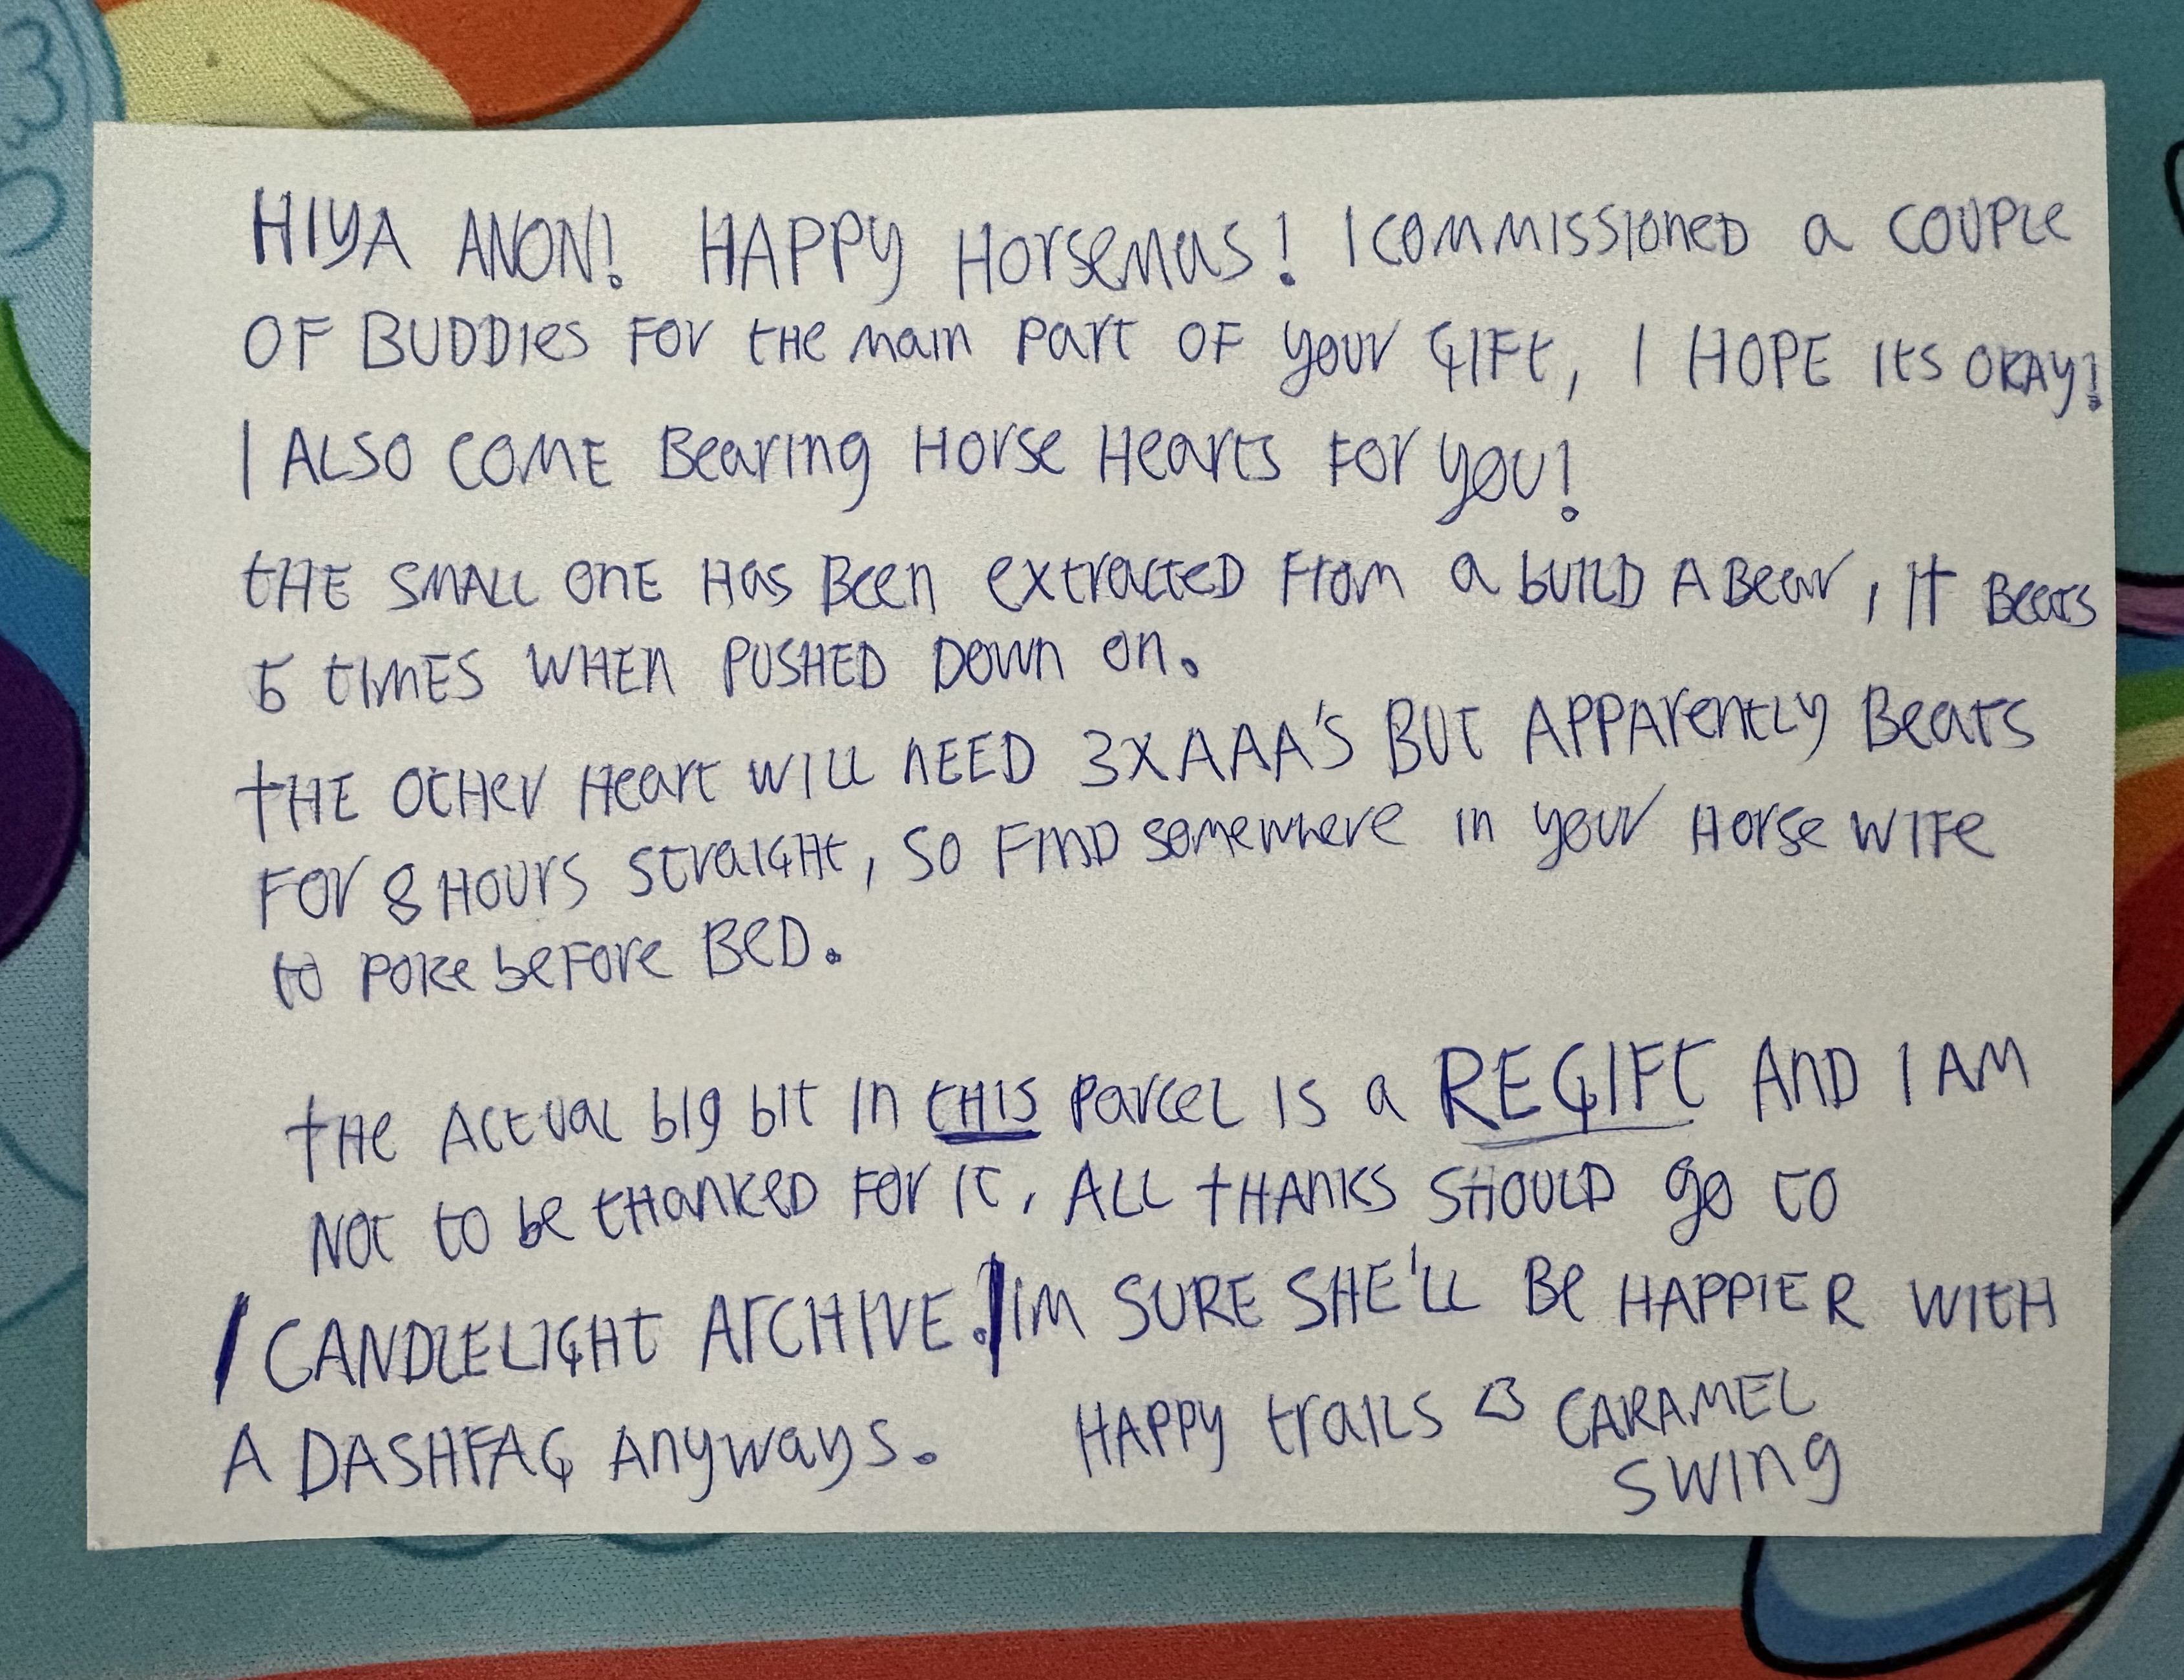 HIYA ANON! HAPPY HorseMas! I COMMISSIONED a COUPLE
OF BUDDIES FOR tHe Main Part OF your GIFt, I HOPE Its OKAY!
I ALSO COME Bearing Horse Hearts For YOU!
tHE SMALL OnE Has Been extracted From a BUILD A Bear, It Beats
5 tIMES WHEn PUSHED Down on.
tHE OtHer Heart WILL NEED 3XAAA'S BUt APPArently Beats
FOr 8 HOUrs straIGHt, SO FIND somewhere in your Horse WIFe
to Poke beFore BeD.
tHe Actual big bit In tHIS Parcel Is a REGIFt AnD I AM
Not to be tHanked For It, ALL tHAnks SHOULD go to
CANDLELIGHt ArCHIVE. IM SURE SHE'LL Be HAPPIER WItH
A DASHFAG Anyways. HAPPy traILs <3 CARAMEL
SWIng